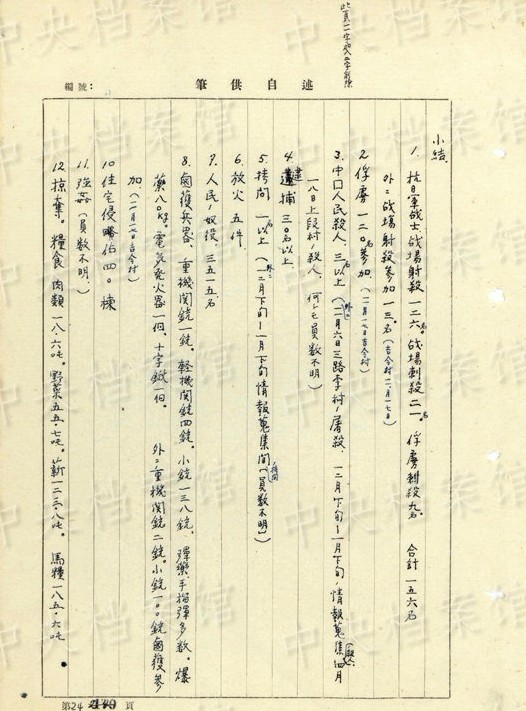 此頁二字改五字削除
編號:
筆供自述
小結
1. 抗日軍战士、战場射殺一二六名。战場刺殺二一名 俘虜刺殺九名 合計一五六名
外ニ战場射殺参加一三名(吉令村一、一七日)
2. 俘虜一二〇名参加(一一月一七日吉令村)
3. 中口人民殺人三名以上(外ニ二月六日三路李村ノ屠殺、一二月下旬〜一月下旬ノ情報蒐集 四月
一八日上段村ノ殺人、何レモ員数不明)
4. 逮捕三〇名以上
5. 拷問一名以上(外ニ一二月下旬〜一月下旬情報蒐集間ノ拷問(員数不明)
6. 放火五件
7. 人民ノ奴役、三五一五名
8. 鹵獲兵器、重機関銃一銃、軽機関銃四銃、小銃一三八銃、弾薬、手榴弾多数。爆
薬八〇kg。電気発火器一個、十字鍬一個。 外ニ重機関銃二銃。小銃一〇〇銃鹵獲参
加(一一月一七日吉令村)
10. 住宅侵略占四〇棟
11. 強姦(員数不明)
12. 掠奪。糧食、肉類一八・六吨。野菜五五・七吨。薪一二三・八吨。馬糧一八五・六吨
第24頁
中央档案馆